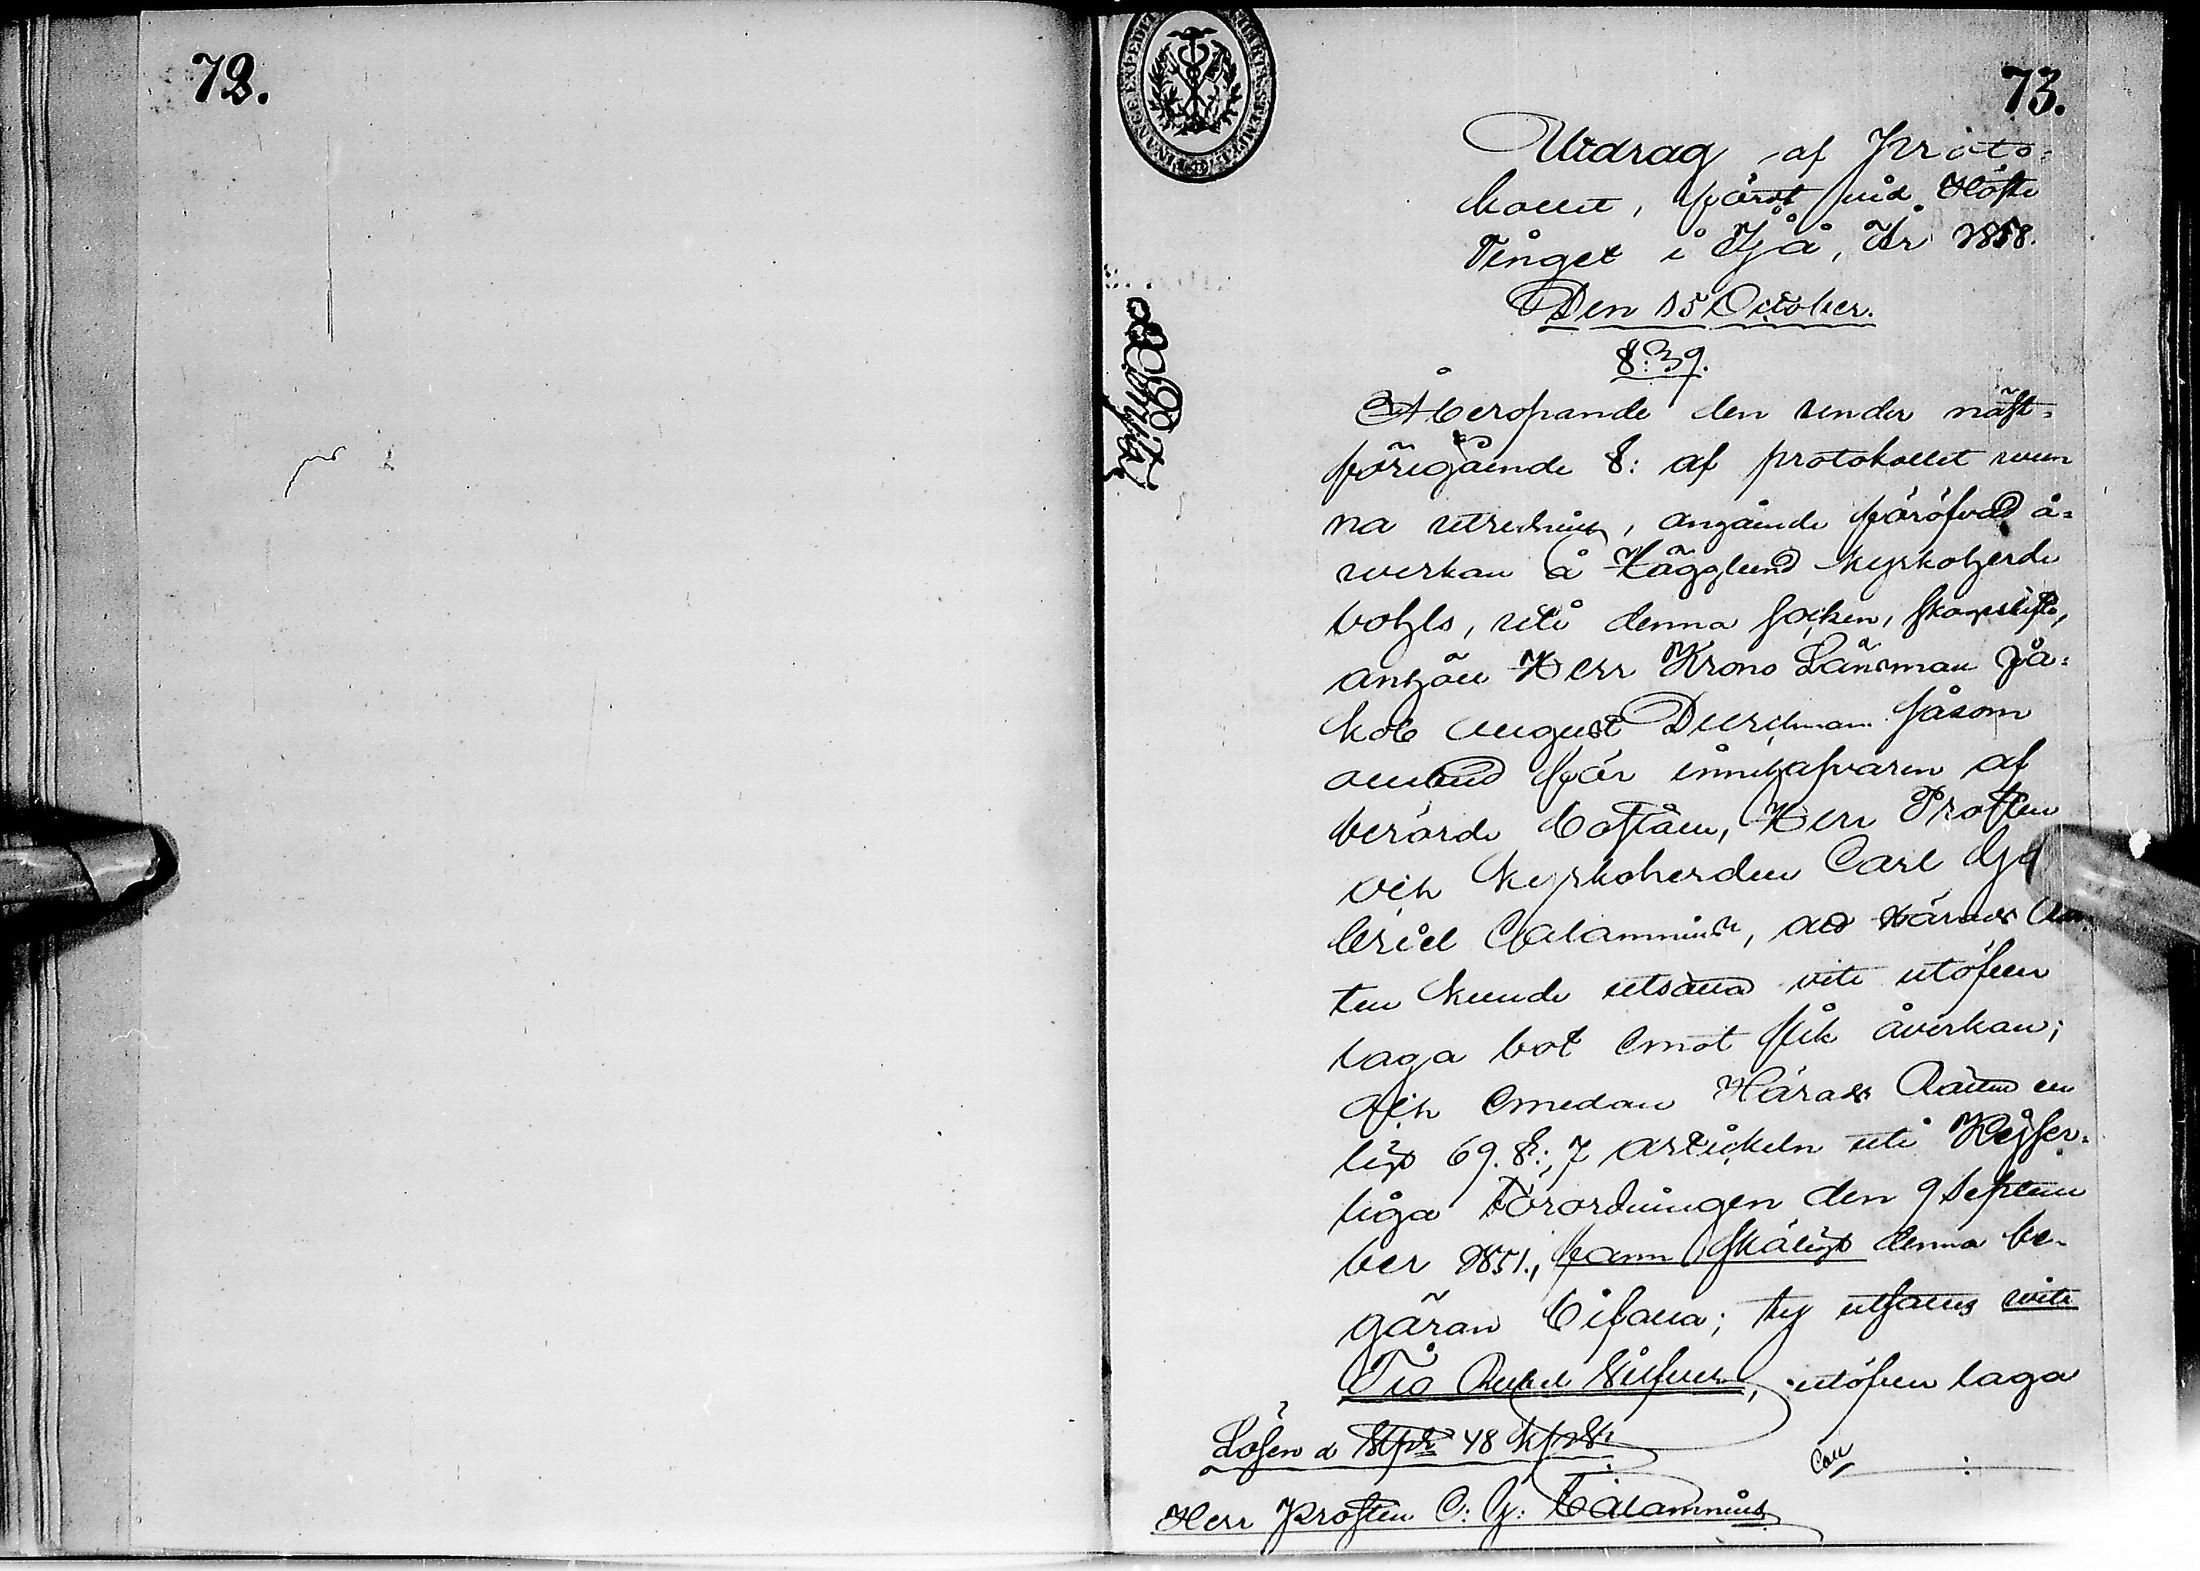 72.
73.
Utdrag af Proto-
kollet, fördt vid Höste
Tinget i Ijå, År 1858.
Den 15 October.
§: 39.
Åberopande den under näst-
föregående §: af protokollet vun
na utredning, angående föröfvad å-
verkan å Hägglund Kyrkoherde
bohls, uti denna socken, skogsskifte,
anhöll Herr Krono Länsman Ja-
kob August Durchman såsom
ombud för innehafvaren af
berörde boställe, Herr Prosten
och Kyrkoherden Carl Ga
briel Calamnius, att Härads Rät-
ten kunde utsätta vite utöfver
laga bot emot slik åverkan;
och emedan Härads Rätten en
ligt 69. §:, 7 artickeln uti Kejser-
liga Förordningen den 9 Septem
ber 1851., fann skäligt denna be-
gäran bifalla; ty utsattes vite
Tio Rubel Silfver, utöfver laga
Lösen a 48 kop. S.
Herr Prosten C: G: Calamnius